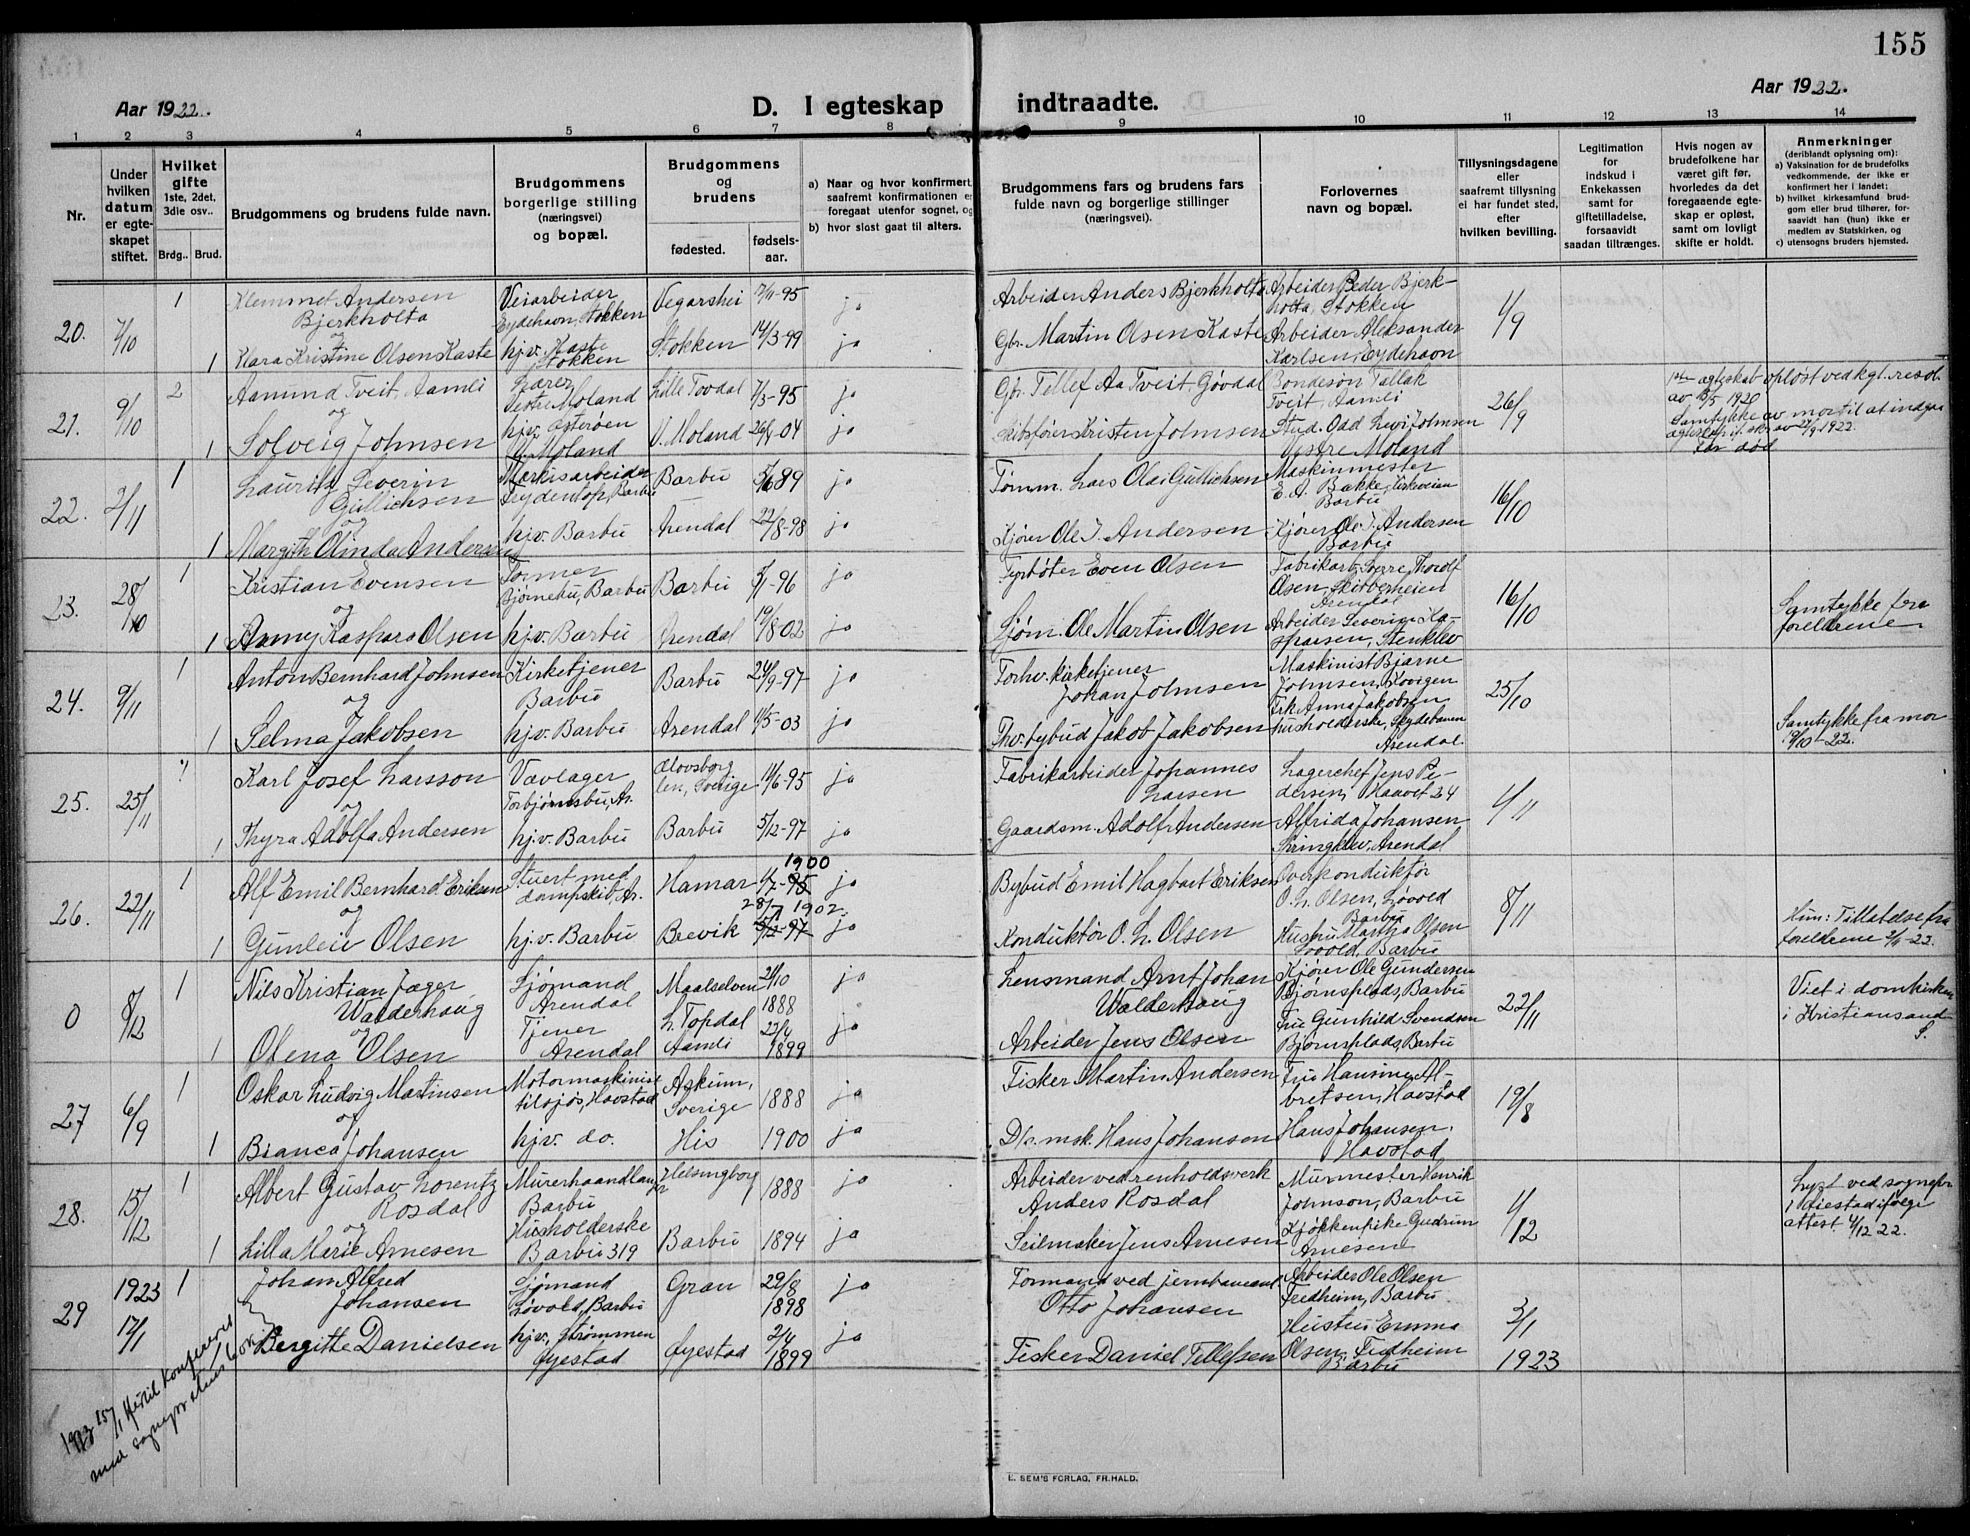 155
Aar 1922.
D. I egteskap
indtraadte.
Aar 1922.
1 2 3 4 5 6 7 8 9 10 11 12 13 14
Nr.
Under hvilken datum er egteskapet stiftet.
Hvilket gifte 1ste, 2det, 3die osv..
Brdg.. Brud.
Brudgommens og brudens fulde navn.
Brudgommens borgerlige stilling (næringsvei) og bopæl.
Brudgommens og brudens
fødested.
fødselsaar.
a) Naar og hvor konfirmert, saafremt konfirmationen er foregaat utenfor sognet, og
b) hvor sidst gaat til alters.
Brudgommens fars og brudens fars fulde navn og borgerlige stillinger (næringsvei).
Forlovernes navn og bopæl.
Tillysningsdagene eller saafremt tillysning ei har fundet sted, efter hvilken bevilling.
Legitimation for indskud i Enkekassen samt for giftetilladelse, forsaavidt saadan tiltrænges.
Hvis nogen av brudefolkene har været gift før, hvorledes da det foregaaende egteskap er opløst, samt om lovligt skifte er holdt.
Anmerkninger (deriblandt oplysning om):
a) Vaksination for de brudefolks vedkommende, der ikke er konfirmert her i landet;
b) hvilket kirkesamfund brudgom eller brud tilhører, forsaavidt han (hun) ikke er medlem av Statskirken, og
c) utensogns bruders hjemsted.
20. 7/10 1 Klemmet Andersen Bjerkholta Veiarbeider Eydehavn, Stokken Vegarshei 7/11-95 ja Arbeider Anders Bjerkholta Arbeider Peder Bjerkholta, Stokken 1/9
og
1 Klara Kristine Olsen Kaste hjv. Kaste Stokken Stokken 14/3-99 ja Gbr. Martin Olsen Kaste Arbeider Aleksander Karlsen, Eydehavn
21. 9/10 2 Aamund Tveit, Aamli Lærer Vestre Moland Lille Tovdal 7/3-95 ja Gbr. Tellef Aa Tveit, Gjøvdal Bondesøn Tallak Tveit, Aamli 26/9 1ste egteskab opløst ved kgl. resol. av 1920
og
1 Solveig Johnsen hjv. Østerøen V. Moland V. Moland 26/9-04 ja Skibsfører Kristen Johnsen Stud. Odd Levi Johnsen Vestre Moland Samtykke av mor til at indgaa av 27/9 1922. Far død
22. 2/11 1 Lauritz Severin Gullichsen Frydenlop, Barbu Barbu 89 ja Tømm. Lars Olai Gullichsen Maskinmester E. A. Bakke, Barbu 16/10
og
1 Margith Olinda Andersen hjv. Barbu Arendal 22/8-98 ja Kjører Ole I. Andersen Kjører Ole I. Andersen Barbu
23. 28/10 1 Kristian Evensen Former Bjørnebu, Barbu Barbu -96 ja Fyrbøter Even Olsen Fabrikarb. Sverre Thorolf Olsen, Skibberheien Arendal 16/10
og
1 Anny Kaspara Olsen hjv. Barbu Arendal 19/8 02 ja Sjøm. Ole Martin Olsen Arbeider Severin Kaspersen, Stenklev Samtykke fra foreldrene
24. 9/11 1 Anton Bernhard Johnsen Kirketjener Barbu Barbu 24/9-97 ja Forhv. kirketjener Johan Johnsen Maskinist Bjarne Johnsen, Kovigen 25/10
og
1 Selma Jakobsen hjv. Barbu Arendal 11/5-03 ja Fhv. bybud Jakob Jakobsen Frk Anna Jakobsen husholderske, Skydebanen Arendal Samtykke fra mor 9/10-22.
25. 25/11 1 Karl Josef Larsson Vævlager Torbjørnsbu, Ar. Elovsborg len, Sverige 11/6-95 ja Fabrikarbeider Johannes Larsen Lagerchef Jens Pedersen, Haavet 34 4/11
og
1 Thyra Adolfa Andersen hjv. Barbu Barbu 5/12-97 ja Gaardsm. Adolf Andersen Alfrida Johansen Arendal
26. 22/11 1 Alf Emil Bernhard Eriksen Stuert med dampskib, Ar. Hamar 4/7-95 1900 ja Bybud Emil Hagbart Eriksen Overkonduktør O. L. Olsen, Løvold Barbu 8/11
og
1 Gunleiv Olsen hj.v. Barbu Brevik 28/7 1902 -97 ja Konduktør O. L. Olsen Hustru Martha Olsen Løvold, Barbu Hun: Tilladelse fra foreldrene 2/11-22.
0 8/12 1 Nils Kristian Jæger Walderhaug Sjømand Arendal Maalselven 21/10 1888 ja Lensmand Arnt Johan Walderhaug Kjører Ole Gundersen Bjørnsplads, Barbu 22/11 Viet i domkirken i Kristiansand S.
og
1 Olena Olsen Tjener Arendal L. Topdal Aamli 22/4 1899 ja Arbeider Jens Olsen Fru Gunhild Svendsen Bjørnsplads, Barbu
27 6/9 1 Oskar Ludvig Martinsen Motormaskinist tilsjøs, Havstad Askum, Sverige 1888 ja Fisker Martin Andersen Fru Hansine Albretsen, Havstad 19/8
og
1 Bianca Johansen hjv. do. His 1900 ja D/s. msk. Hans Johansen Hans Johansen. Havstad
28. 15/12 1 Albert Gustav Lorentz Rosdal Murerhaandlanger Barbu Helsingborg 1888 ja Arbeider ved renholdsverk Anders Rosdal Murmester Henrik Johnson, Barbu 4/12 Lyst ved sognepr i Øiestad ifølge attest 4/12 22.
og
1 Lilla Marie Arnesen Husholderske Barbu 319 Barbu 1894 ja Seilmaker Jens Arnesen Kjøkkenpike Gudrun Arnesen
29 1923 12/1 1 Johan Alfred Johansen Sjømand Løvold, Barbu Gran 29/8 1898 ja Formand ved jernbaneanl. Otto Johansen Arbeider Ole Olsen Fredheim, Barbu 3/1 1923
1 Bergitte Danielsen hjv., Strømmen Øyestad Øyestad 2/4 1899 ja Fisker Daniel Tellefsen Hustru Emma Olsen, Fredheim Barbu
1923 15/1 Hertil konfereret med sogneprestens bok
E. SEM'S FORLAG, FR.HALD.